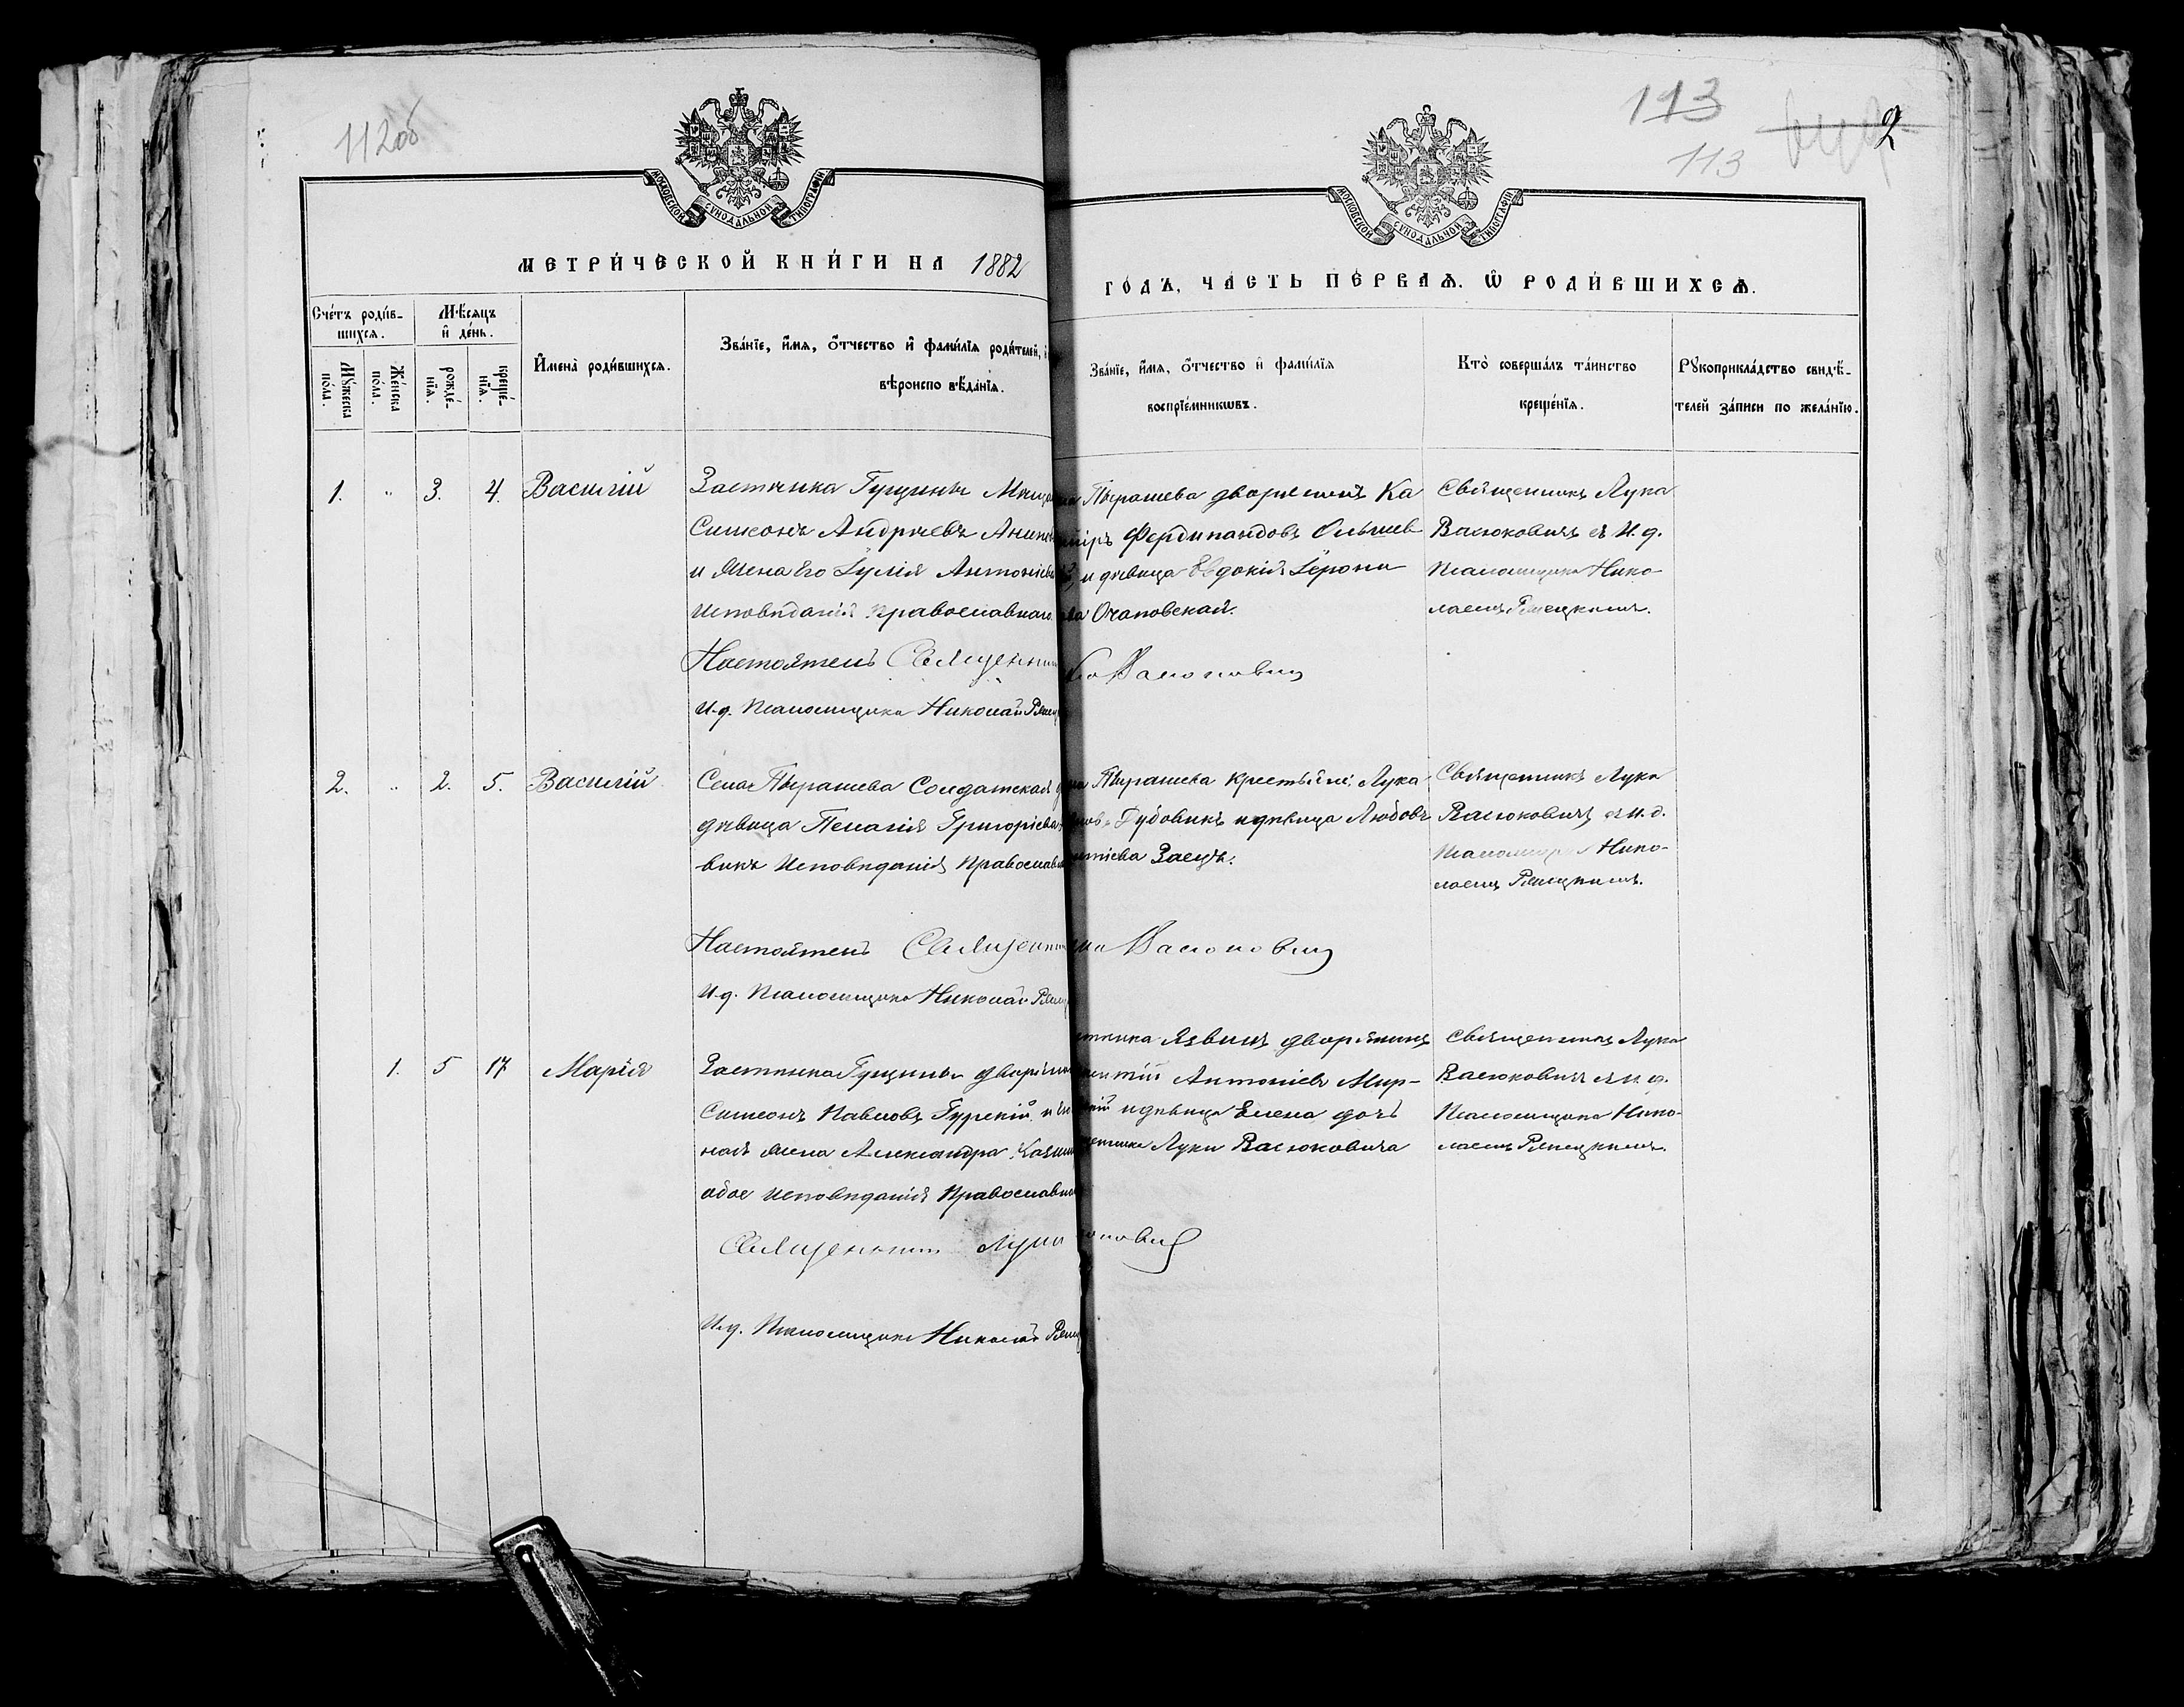 112об
113
113
2
МОСКОВСКОЙ СѴНОДАЛЬНОЙ ТИПОГРАФІИ
МОСКОВСКОЙ СѴНОДАЛЬНОЙ ТИПОГРАФІИ
МЕТРИ́ЧЕСКОЙ КНИ́ГИ НА 1882
ГО́ДЪ, ЧА́СТЬ ПЕ́РВАѦ. Ѡ҆ РОДИ́ВШИХСѦ.
Сче́тъ роди́в-
шихсѧ.
Мꙋ́жеска по́ла.
Же́нска по́ла.
Мѣ́сяцъ
и҆ де́нь.
рожде́-нїѧ.
креще́-нїѧ.
И҆мена̀ роди́вшихсѧ.
Зва́нїе, и҆́мѧ, ѻ҆́тчество и҆ фами́лїѧ роди́телей,
вѣроиспо вѣ́данїѧ.
Зва́нїе, и҆́мѧ, ѻ҆́тчество и҆ фами́лїѧ
воспрїе́мникѡвъ.
Кто̀ соверша́лъ та́инство
креще́нїѧ.
Рꙋкоприкла́дство свидѣ́-
телей за́писи по жела́нїю.
1. " 3. 4. Василій
Застѣнка Гущинъ
Симеонъ Андреевъ
и жена его Іулія Антоніева
исповѣданія православнаго.
Настоятель Священникъ
И. д. псаломщика Николай
Пырашева дворянинъ Ка
міръ Фердинандовъ
и дѣвица Евдокія Іерони
Очаповская.
Васюковичъ
Священникъ Лука
Васюковичъ съ И. д.
псаломщика Нико-
лаемъ
2. " 2. 5. Василій
Села Пырашева солдатская
дѣвица Пелагія Григоріева
викъ исповѣданія православн
Настоятель Священникъ
И. д. псаломщика Николай
Пырашева крестьяне: Лука
Дубовикъ и дѣвица Любовь
Заецъ.
Васюковичъ
Священникъ Лука
Васюковичъ съ и. д.
псаломщика Нико-
лаемъ
1. 5 17 Марія
Застѣнка Гущинъ дворянинъ
Симеонъ Павловъ Гурскій и
ная жена Александра
обое исповѣданія православн
Священникъ Лука
И. д. псаломщика Николай
Язвинъ дворянинъ
Антоніевъ Мир-
и дѣвица Елена дочь
Луки Васюковича
Священникъ Лука
Васюковичъ съ и. д.
псаломщика Нико-
лаемъ